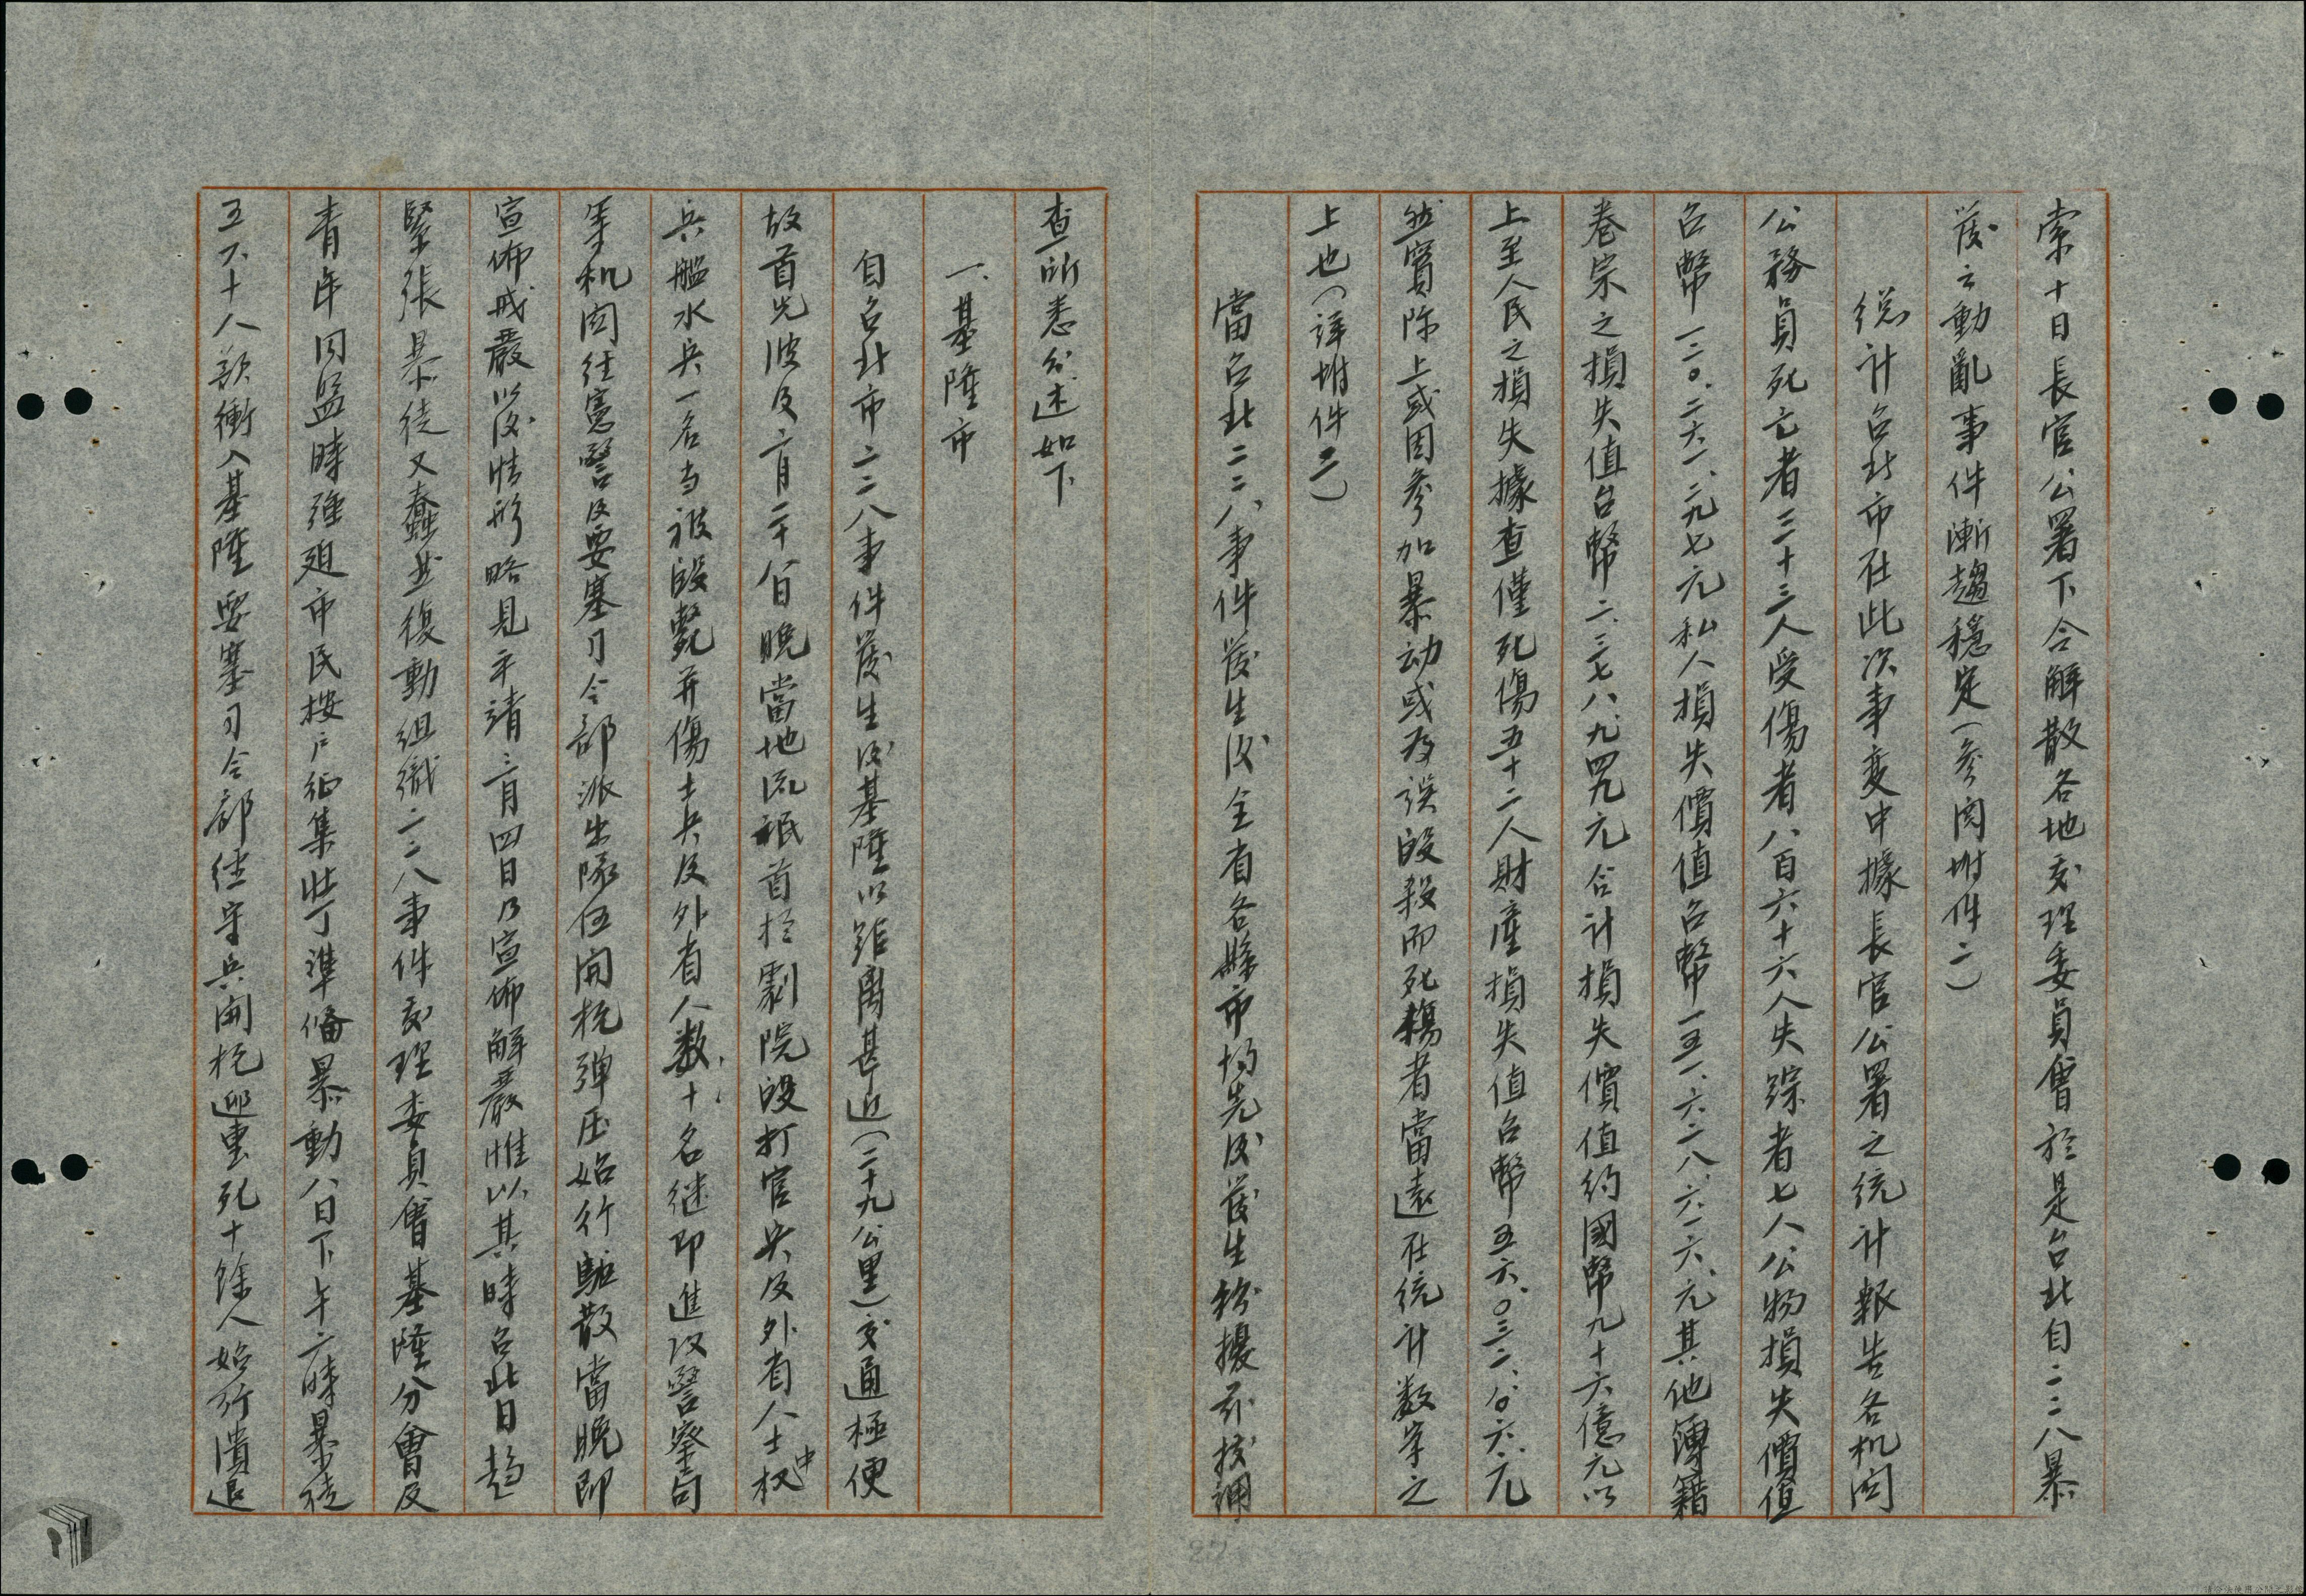 索十日長官公署下令解散各地处理委員會於是台北自二二八暴
發之動亂事件漸趨穩定(參閱坿件二)
總計台北市在此次事变中據長官公署之统计報告各机関
公務員死亡者三十三人受傷者八百六十六人失踪者七人公物損失價值
台幣一二〇.二六一.二九七元私人損失價值台幣一五一.六二八.六一六.元其他簿籍
卷宗之損失值台幣二.三七八.九四九元合计損失價值约國幣九十六億元以
上至人民之損失據查僅死傷五十二人財產損失值台幣五六.〇三二.六.元
然實际上或因參加暴动或为误殴殺而死傷者當遠在统计数字之
上也(詳坿件二)
當台北二二八事件发生後全省各縣市均先後发生纷擾茲按調
查所悉分述如下
一、基隆市
自台北市二二八事件发生後基隆以距离甚近(二十九公里)交通極便
故首先波及二月二十八日晚當地流氓首於中央劇院殴打官兵及外省人士
兵艦水兵一名当被殴斃并傷士兵及外省人数十名继即進攻警察局
等机関经憲警及要塞司令部派出隊伍開枪弹压始行駈散當晚即
宣佈戒嚴以後情形略見平靖三月四日乃宣佈解嚴惟以其時台北日趋
緊張暴徒又蠢然復動組織二二八事件处理委員會基隆分會及
青年同盟時強廹市民按户征集壮丁準备暴動八日下午二時暴徒
五六十人欲衝入基隆要塞司令部经守兵開枪迎擊死十餘人始行潰退